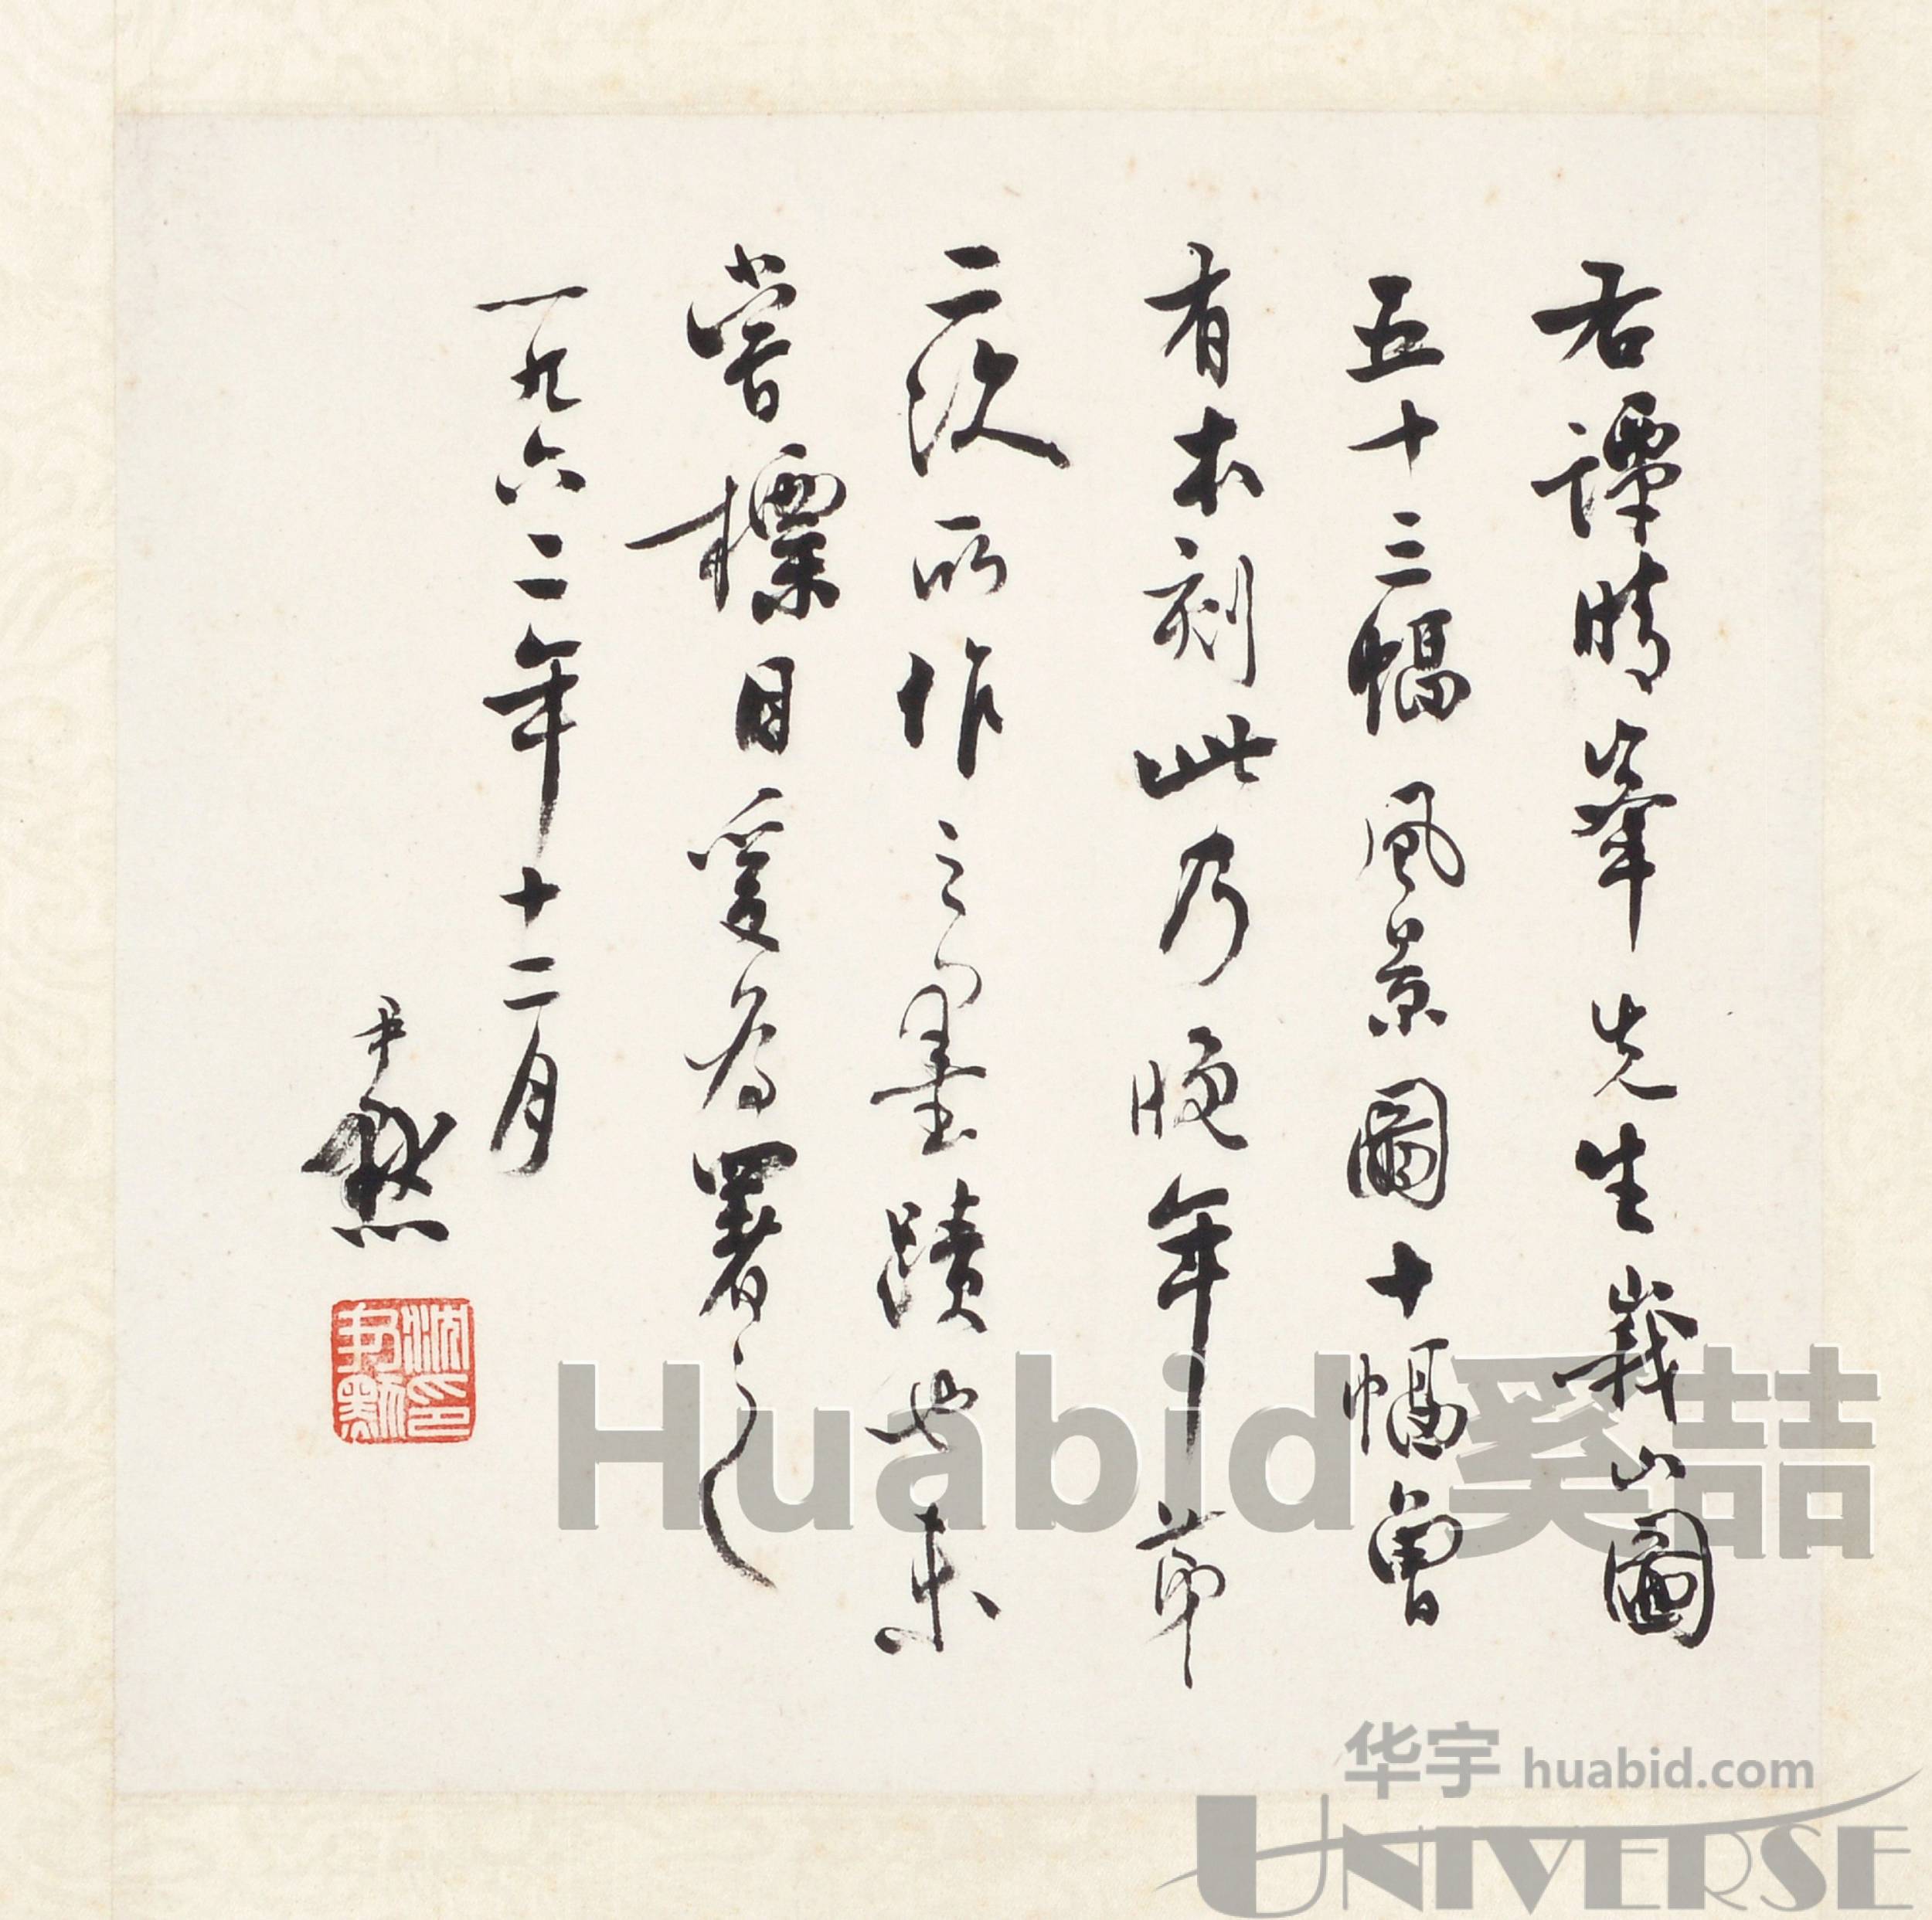 右譚晴峯先生峩山圖
五十三幅風景圖十幅曾
有木刻此乃晚年第
二次所作之墨蹟也未
嘗標目爰為署之
一九六二年十二月
尹默
沈尹默印
Huabid 奚喆
华宇 huabid.com
UNIVERSE